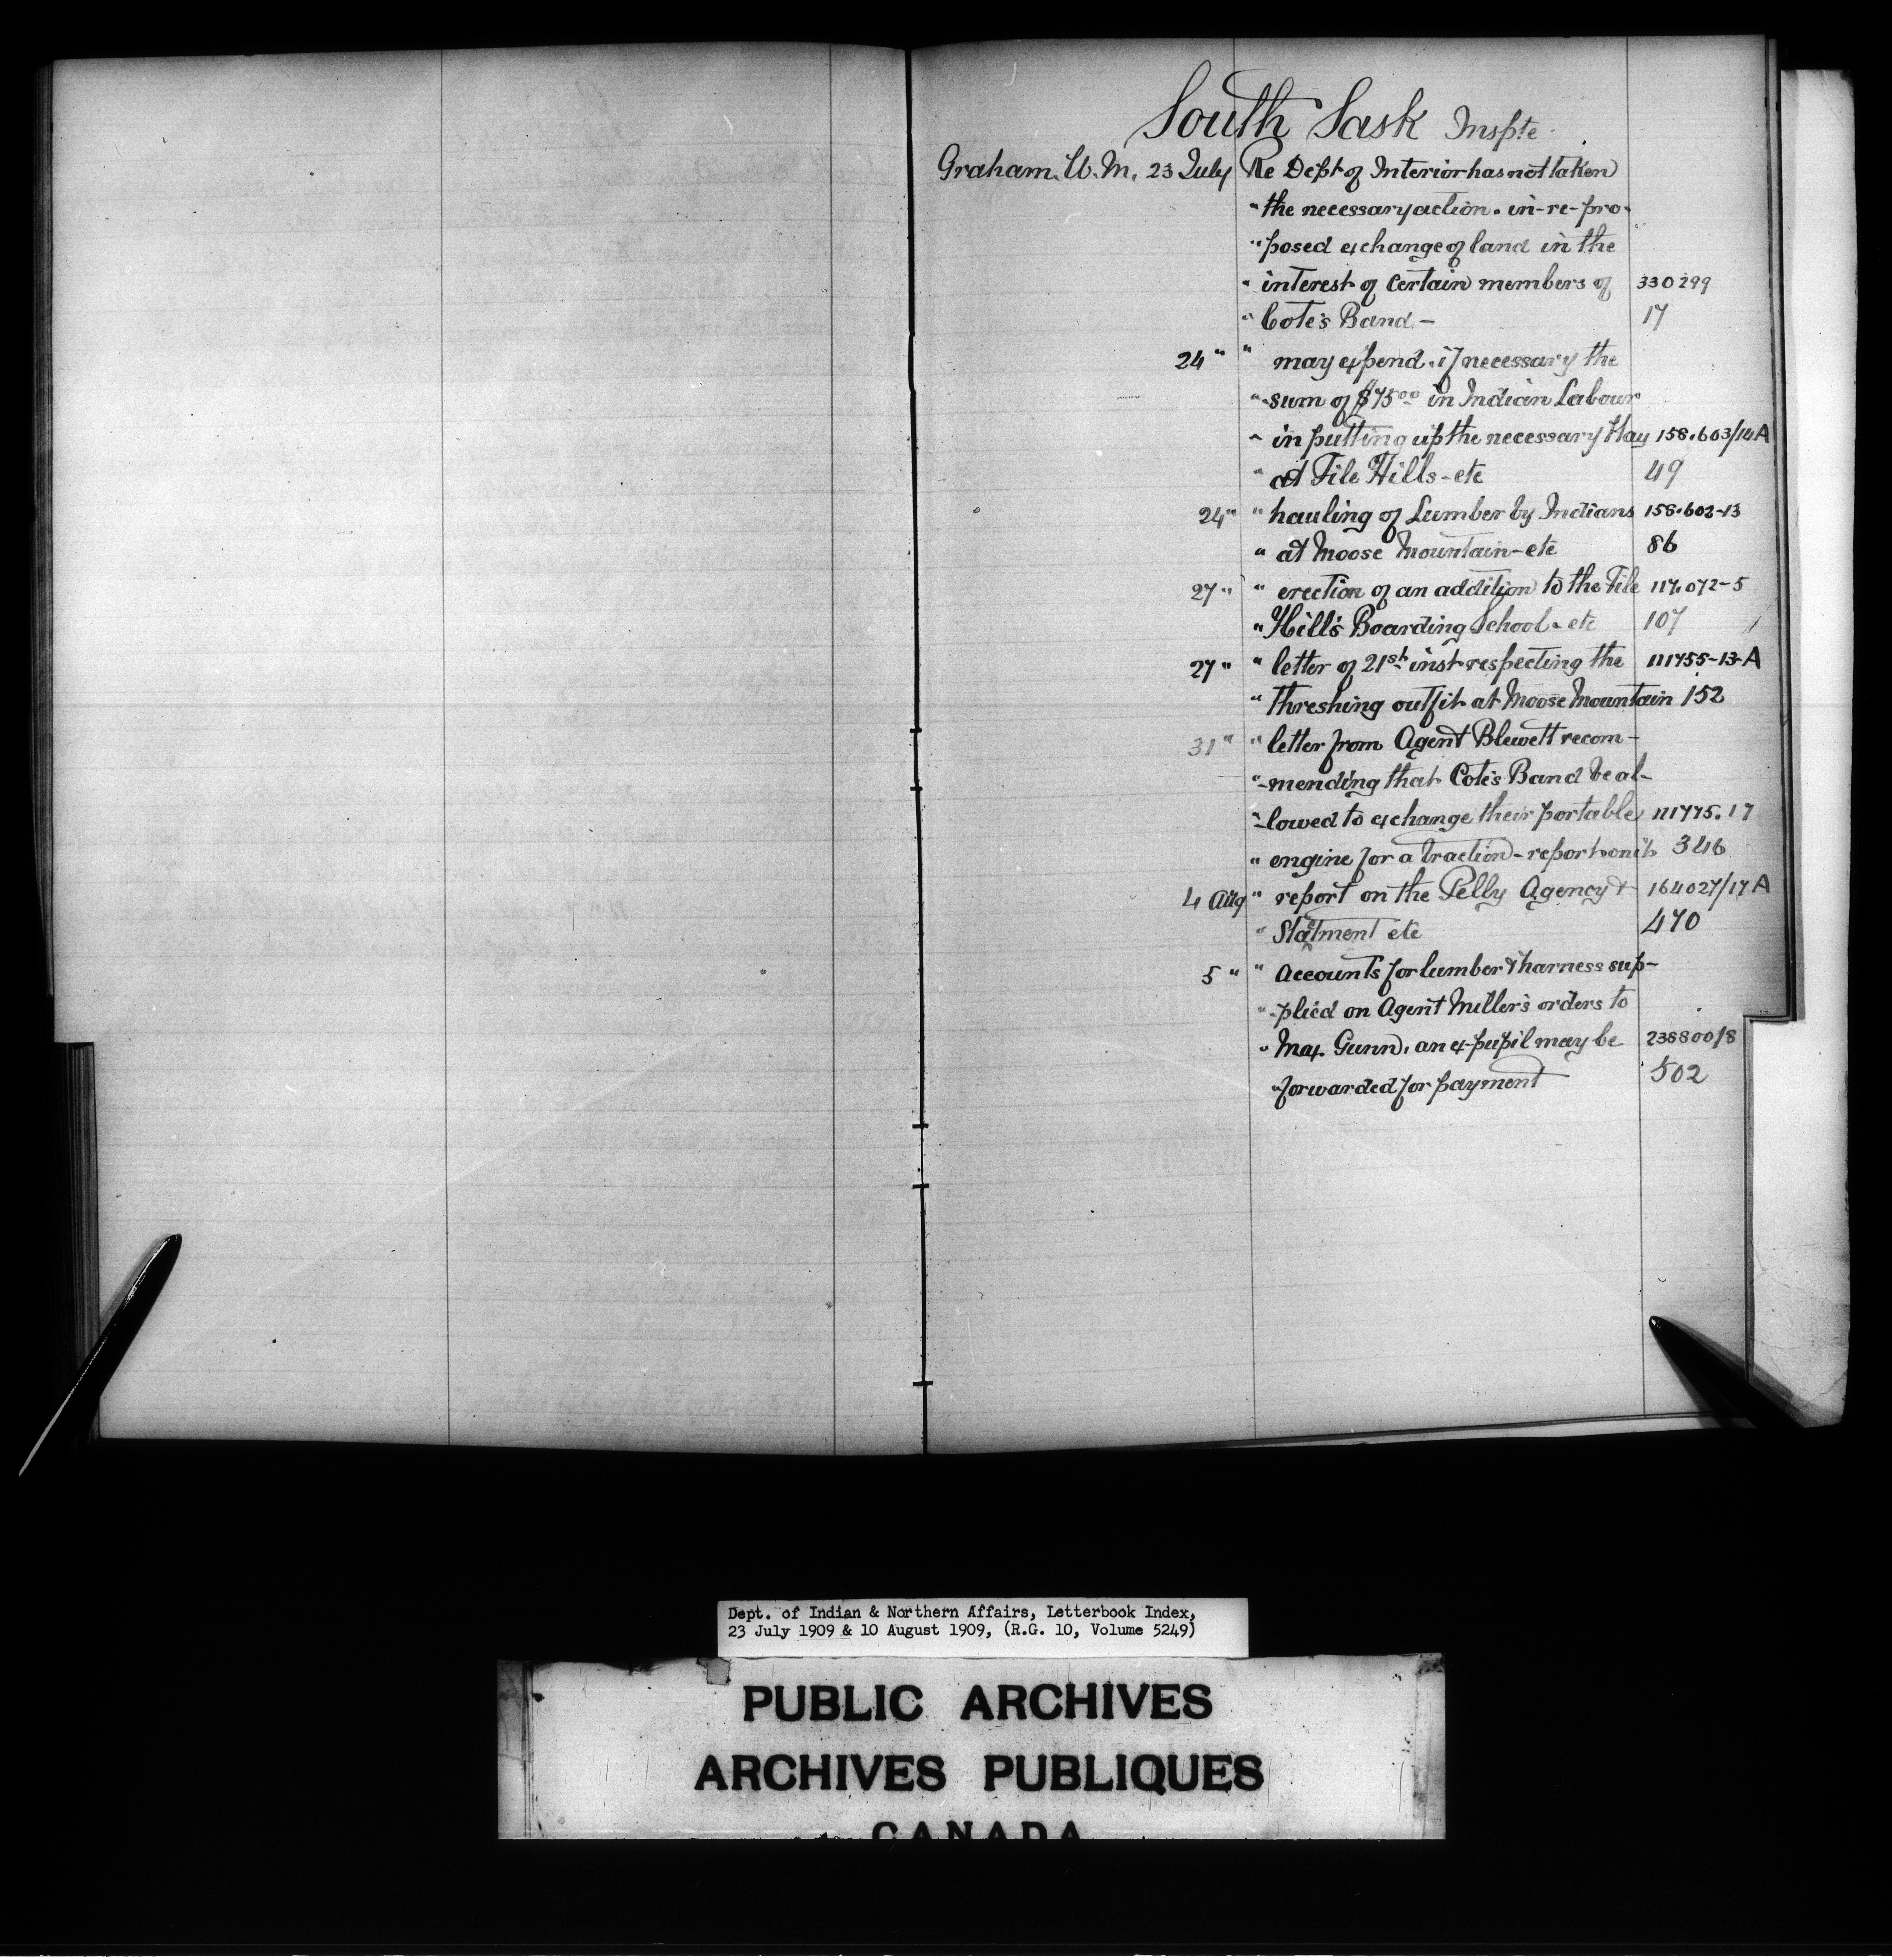 South Sask Inspte.
Graham. W. M. 23 July Re Dept of Interior has not taken
" the necessary action. in-re-pro-
" posed exchange of land in the
" interest of certain members of 330299
" Cote's Band - 17
24 " " may expend. if necessary the
" sum of $75 00 in Indian Labour
" in putting up the necessary Hay 158.603/14A
" at File Hills - etc 49
24 " " hauling of Lumber by Indians 158.602-13
" at Moose Mountain - etc 86
27 " " erection of an addition to the File 117.072-5
" Hill's Boarding School - etc 107
27 " " letter of 21st inst respecting the 111755-13-A
" threshing outfit at Moose Mountain 152
31 " " letter from Agent Blewett recom-
" -mending that Cote's Band be al-
" -lowed to exchange their portable 111775.17
" engine for a traction - report on it 346
4 Aug " report on the Pelly Agency & 164027/17A
" Statment etc 470
5 " " Accounts for lumber & harness sup-
" -plied on Agent Miller's orders to
" Max. Gunn, an ex-pupil may be 238800/8
" forwarded for payment 502
Dept. of Indian & Northern Affairs, Letterbook Index,
23 July 1909 & 10 August 1909, (R.G. 10, Volume 5249)
PUBLIC ARCHIVES
ARCHIVES PUBLIQUES
CANADA